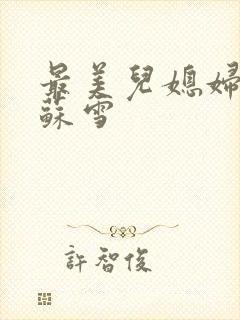 最美兒媳婦
蘇雪
許智俊